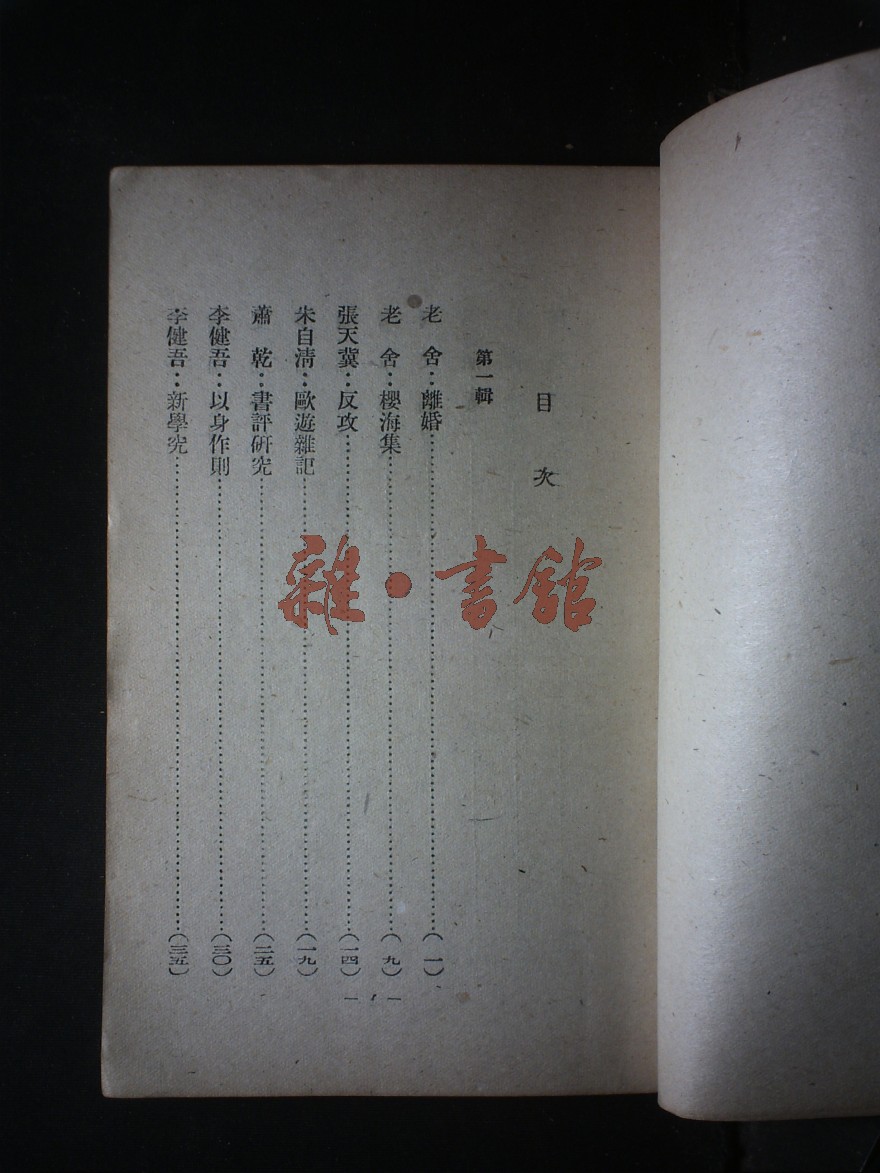 目次
第一輯
老舍：離婚……(一)
老舍：櫻海集……(九)
張天冀：反攻……(一四)
朱自淸：歐遊雜記……(一九)
蕭乾：書評研究……(二五)
李健吾：以身作則……(三〇)
李健吾：新學究……(三五)
— 1 —
雜·書館